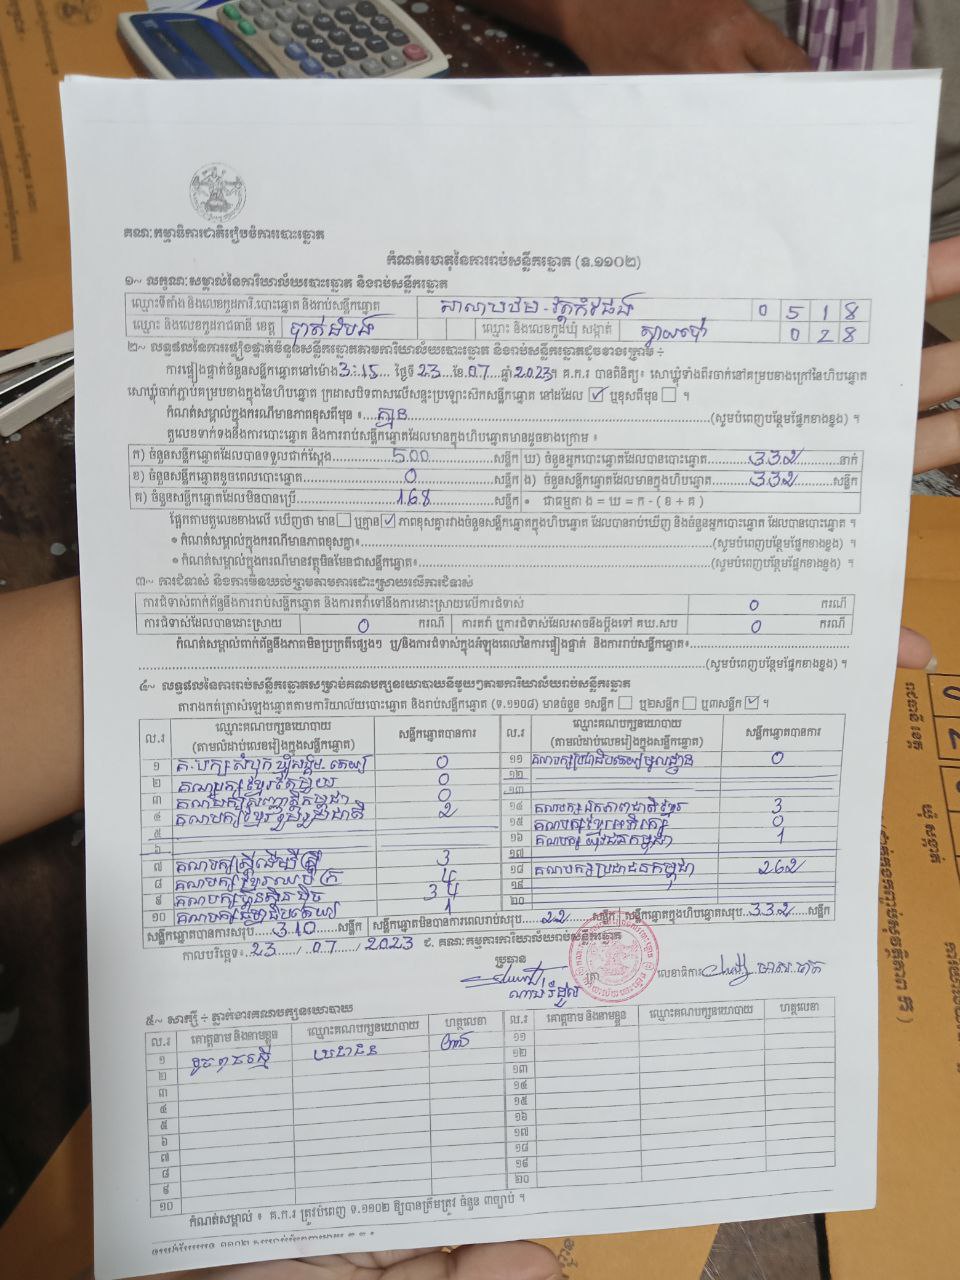 គណៈកម្មាធិការជាតិរៀបចំការបោះឆ្នោត
កំណត់ហេតុនៃការរាប់សន្លឹកឆ្នោត (ទ.១១០២)
១~ លក្ខណៈសម្គាល់នៃការិយាល័យបោះឆ្នោត និងរាប់សន្លឹកឆ្នោត
ឈ្មោះទីតាំង និងលេខកូដការិ.បោះឆ្នោត និងរាប់សន្លឹកឆ្នោត 0 5 1 8
ឈ្មោះ និងលេខកូដរាជធានី ខេត្ត បាត់ដំបង ឈ្មោះ និងលេខកូដឃុំ សង្កាត់ ស្វាយប៉ោ 0 2 8
២~ លទ្ធផលនៃការផ្ទៀងផ្ទាត់ចំនួនសន្លឹកឆ្នោតតាមការិយាល័យបោះឆ្នោត និងរាប់សន្លឹកឆ្នោតដូចខាងក្រោម ÷
ការផ្ទៀងផ្ទាត់ចំនួនសន្លឹកឆ្នោតនៅម៉ោង 3:15 ថ្ងៃទី 23 ខែ 07 ឆ្នាំ 2023។ គ.ក.រ បានពិនិត្យ៖ សោឃ្លុំទាំងពីរចាក់នៅគម្របខាងក្រៅនៃហិបឆ្នោត
សោឃ្លុំចាក់ភ្ជាប់គម្របខាងក្នុងនៃហិបឆ្នោត ក្រដាសបិទពាសលើសន្ទះប្រឡោះសិកសន្លឹកឆ្នោត នៅដដែល ☑ ឬខុសពីមុន ☐ ។
កំណត់សម្គាល់ក្នុងករណីមានភាពខុសពីមុន ÷ គ្មាន (សូមបំពេញបន្ថែមផ្នែកខាងខ្នង) ។
តួលេខទាក់ទងនឹងការបោះឆ្នោត និងការរាប់សន្លឹកឆ្នោតដែលមានក្នុងហិបឆ្នោតមានដូចខាងក្រោម ៖
ក) ចំនួនសន្លឹកឆ្នោតដែលបានទទួលជាក់ស្តែង 500 សន្លឹក ឃ) ចំនួនអ្នកបោះឆ្នោតដែលបានបោះឆ្នោត 332 នាក់
ខ) ចំនួនសន្លឹកឆ្នោតខូចពេលបោះឆ្នោត 0 សន្លឹក ង) ចំនួនសន្លឹកឆ្នោតដែលមានក្នុងហិបឆ្នោត 332 សន្លឹក
គ) ចំនួនសន្លឹកឆ្នោតដែលមិនបានប្រើ 168 សន្លឹក • ជាធម្មតា ង = ឃ = ក - ( ខ + គ )
ផ្អែកតាមតួលេខខាងលើ ឃើញថា មាន ☐ ឬគ្មាន ☑ ភាពខុសគ្នារវាងចំនួនសន្លឹកឆ្នោតក្នុងហិបឆ្នោត ដែលបានរាប់ឃើញ និងចំនួនអ្នកបោះឆ្នោត ដែលបានបោះឆ្នោត ។
• កំណត់សម្គាល់ក្នុងករណីមានភាពខុសគ្នា៖ (សូមបំពេញបន្ថែមផ្នែកខាងខ្នង) ។
• កំណត់សម្គាល់ក្នុងករណីមានវត្ថុមិនមែនជាសន្លឹកឆ្នោត៖ (សូមបំពេញបន្ថែមផ្នែកខាងខ្នង) ។
៣~ ការជំទាស់ និងការមិនយល់ព្រមតាមការដោះស្រាយលើការជំទាស់
ការជំទាស់ពាក់ព័ន្ធនឹងការរាប់សន្លឹកឆ្នោត និងការតវ៉ាទៅនឹងការដោះស្រាយលើការជំទាស់ 0 ករណី
ការជំទាស់ដែលបានដោះស្រាយ 0 ករណី ការតវ៉ា ឬការជំទាស់ដែលអាចនឹងប្តឹងទៅ គឃ.សប 0 ករណី
កំណត់សម្គាល់ពាក់ព័ន្ធនឹងភាពមិនប្រក្រតីផ្សេងៗ ឬ/និងការជំទាស់ក្នុងអំឡុងពេលនៃការផ្ទៀងផ្ទាត់ និងការរាប់សន្លឹកឆ្នោត៖
(សូមបំពេញបន្ថែមផ្នែកខាងខ្នង) ។
៤~ លទ្ធផលនៃការរាប់សន្លឹកឆ្នោតសម្រាប់គណបក្សនយោបាយនីមួយៗតាមការិយាល័យរាប់សន្លឹកឆ្នោត
តារាងកត់ត្រាសំឡេងឆ្នោតតាមការិយាល័យបោះឆ្នោត និងរាប់សន្លឹកឆ្នោត (ទ.១១០៨) មានចំនួន ១សន្លឹក ☐ ឬ២សន្លឹក ☐ ឬ៣សន្លឹក ☑ ។
ល.រ ឈ្មោះគណបក្សនយោបាយ (តាមលំដាប់លេខរៀងក្នុងសន្លឹកឆ្នោត) សន្លឹកឆ្នោតបានការ ល.រ ឈ្មោះគណបក្សនយោបាយ (តាមលំដាប់លេខរៀងក្នុងសន្លឹកឆ្នោត) សន្លឹកឆ្នោតបានការ
១ 0 ១១ គណបក្សប្រជាធិបតេយ្យមូលដ្ឋាន 0
២ 0 ១២
៣ 0 ១៣
៤ គណបក្សខ្មែររួបរួមជាតិ 2 ១៤ គណបក្សឯកភាពជាតិខ្មែរ 3
៥ ១៥ គណបក្សខ្មែរអភិរក្ស 0
៦ ១៦ គណបក្ស យុវជនកម្ពុជា 1
៧ គណបក្សស្ត្រីដើម្បីស្ត្រី 3 ១៧
៨ 4 ១៨ គណបក្សប្រជាជនកម្ពុជា 262
៩ គណបក្សហ៊្វុនស៊ិនប៉ិច 34 ១៩
១០ 1 ២០
សន្លឹកឆ្នោតបានការសរុប 310 សន្លឹក សន្លឹកឆ្នោតមិនបានការពេលរាប់សរុប 22 សន្លឹក សន្លឹកឆ្នោតក្នុងហិបឆ្នោតសរុប 332 សន្លឹក
កាលបរិច្ឆេទ៖ 23 / 07 / 2023 ៩. គណៈកម្មការការិយាល័យរាប់សន្លឹកឆ្នោត
ប្រធាន លេខាធិការ
៥~ សាក្សី ÷ ភ្នាក់ងារគណបក្សនយោបាយ
ល.រ គោត្តនាម និងនាមខ្លួន ឈ្មោះគណបក្សនយោបាយ ហត្ថលេខា ល.រ គោត្តនាម និងនាមខ្លួន ឈ្មោះគណបក្សនយោបាយ ហត្ថលេខា
១ ប្រជាជន ១១
២ ១២
៣ ១៣
៤ ១៤
៥ ១៥
៦ ១៦
៧ ១៧
៨ ១៨
៩ ១៩
១០ ២០
កំណត់សម្គាល់ ៖ គ.ក.រ ត្រូវបំពេញ ទ.១១០២ ឱ្យបានត្រឹមត្រូវ ចំនួន ៣ច្បាប់ ។